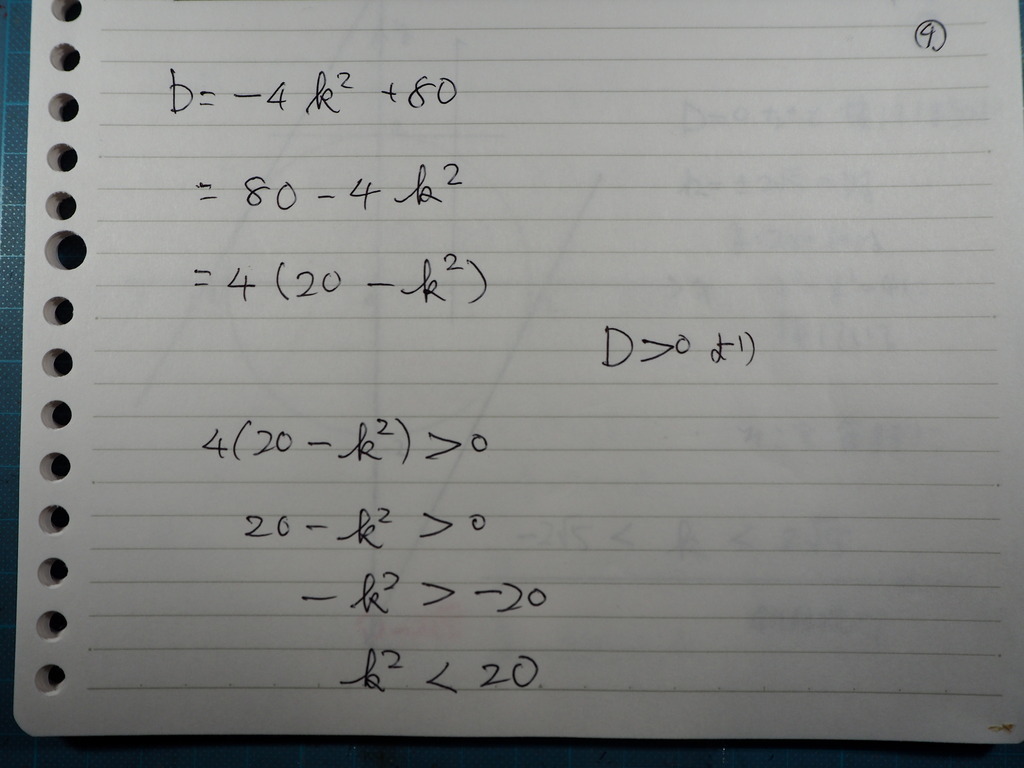 ④
D = -4k² + 80
= 80 - 4k²
= 4(20 - k²)
D > 0 より
4(20 - k²) > 0
20 - k² > 0
-k² > -20
k² < 20